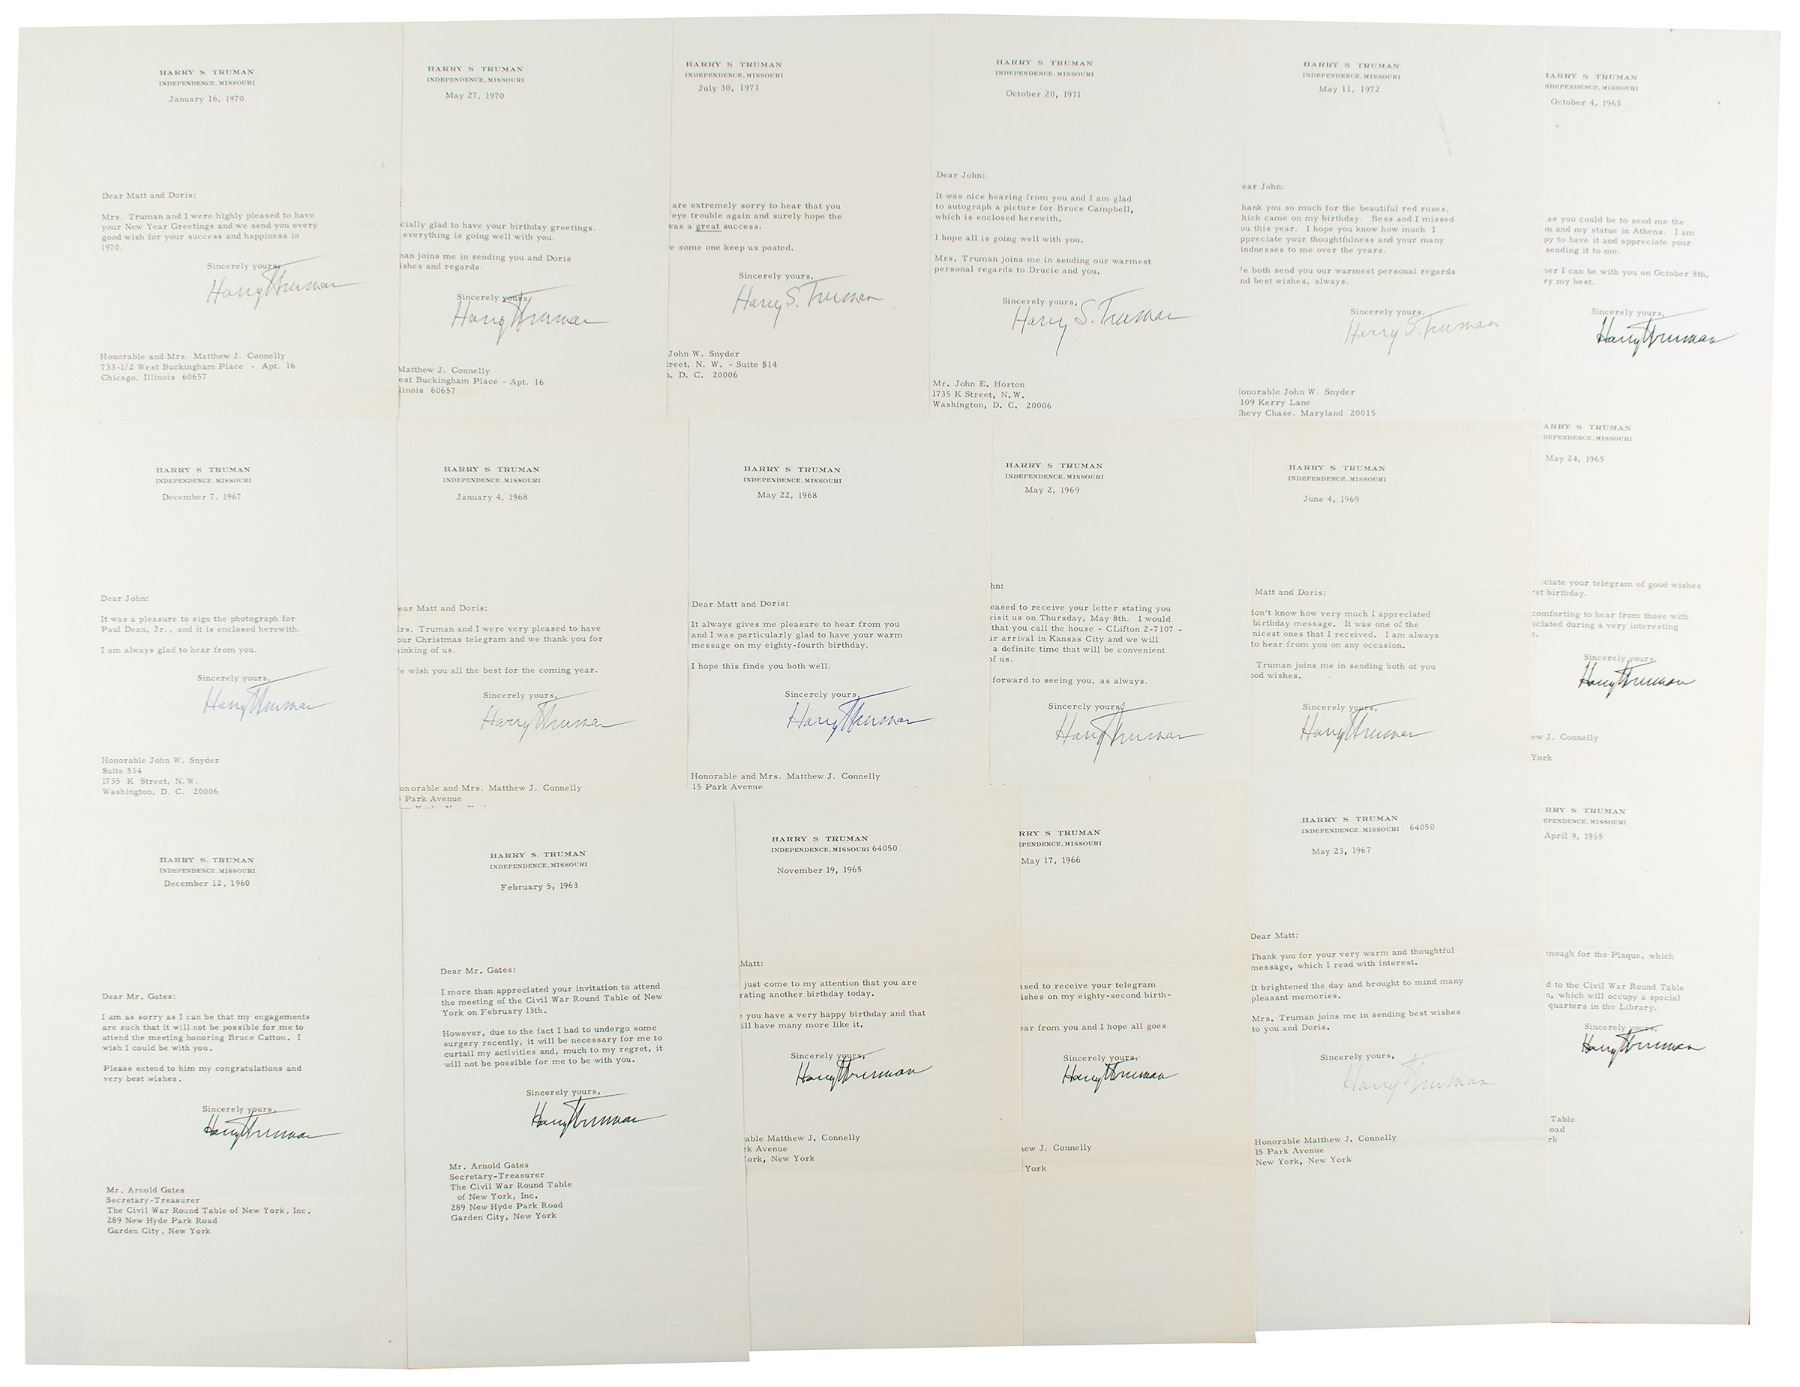 HARRY S TRUMAN
INDEPENDENCE, MISSOURI
January 16, 1970
Dear Matt and Doris:
Mrs. Truman and I were highly pleased to have
your New Year Greetings and we send you every
good wish for your success and happiness in
1970.
Sincerely yours,
Harry Truman
Honorable and Mrs. Matthew J. Connelly
733-1/2 West Buckingham Place - Apt. 16
Chicago, Illinois 60657
HARRY S TRUMAN
INDEPENDENCE, MISSOURI
May 27, 1970
cially glad to have your birthday greetings.
everything is going well with you.
han joins me in sending you and Doris
ishes and regards.
Sincerely yours,
Harry Truman
Matthew J. Connelly
est Buckingham Place - Apt. 16
linois 60657
HARRY S TRUMAN
INDEPENDENCE, MISSOURI
July 30, 1971
are extremely sorry to hear that you
eye trouble again and surely hope the
was a great success.
e some one keep us posted.
Sincerely yours,
Harry S. Truman
John W. Snyder
treet, N. W. - Suite 514
n, D. C. 20006
HARRY S TRUMAN
INDEPENDENCE, MISSOURI
October 20, 1971
Dear John:
It was nice hearing from you and I am glad
to autograph a picture for Bruce Campbell,
which is enclosed herewith.
I hope all is going well with you.
Mrs. Truman joins me in sending our warmest
personal regards to Drucie and you.
Sincerely yours,
Harry S. Truman
Mr. John E. Horton
1735 K Street, N. W.
Washington, D. C. 20006
HARRY S TRUMAN
INDEPENDENCE, MISSOURI
May 11, 1972
ear John:
hank you so much for the beautiful red roses,
hich came on my birthday. Bess and I missed
ou this year. I hope you know how much I
ppreciate your thoughtfulness and your many
indnesses to me over the years.
e both send you our warmest personal regards
nd best wishes, always.
Sincerely yours,
Harry S. Truman
onorable John W. Snyder
109 Kerry Lane
Chevy Chase, Maryland 20015
HARRY S TRUMAN
INDEPENDENCE, MISSOURI
October 4, 1963
as you could be to send me the
n and my statue in Athens. I am
py to have it and appreciate your
sending it to me.
er I can be with you on October 8th,
ry my best.
Sincerely yours,
Harry Truman
HARRY S TRUMAN
INDEPENDENCE, MISSOURI
December 7, 1967
Dear John:
It was a pleasure to sign the photograph for
Paul Dean, Jr., and it is enclosed herewith.
I am always glad to hear from you.
Sincerely yours,
Harry Truman
Honorable John W. Snyder
Suite 514
1735 K Street, N. W.
Washington, D. C. 20006
HARRY S TRUMAN
INDEPENDENCE, MISSOURI
January 4, 1968
ear Matt and Doris:
rs. Truman and I were very pleased to have
our Christmas telegram and we thank you for
inking of us.
e wish you all the best for the coming year.
Sincerely yours,
Harry Truman
onorable and Mrs. Matthew J. Connelly
Park Avenue
HARRY S TRUMAN
INDEPENDENCE, MISSOURI
May 22, 1968
Dear Matt and Doris:
It always gives me pleasure to hear from you
and I was particularly glad to have your warm
message on my eighty-fourth birthday.
I hope this finds you both well.
Sincerely yours,
Harry Truman
Honorable and Mrs. Matthew J. Connelly
15 Park Avenue
HARRY S TRUMAN
INDEPENDENCE, MISSOURI
May 2, 1969
hn:
eased to receive your letter stating you
visit us on Thursday, May 8th. I would
that you call the house - CLifton 2-7107 -
ur arrival in Kansas City and we will
a definite time that will be convenient
of us.
forward to seeing you, as always.
Sincerely yours,
Harry Truman
HARRY S TRUMAN
INDEPENDENCE, MISSOURI
June 4, 1969
Matt and Doris:
don't know how very much I appreciated
birthday message. It was one of the
nicest ones that I received. I am always
to hear from you on any occasion.
Truman joins me in sending both of you
ood wishes.
Sincerely yours,
Harry Truman
ARRY S TRUMAN
DEPENDENCE, MISSOURI
May 24, 1965
ciate your telegram of good wishes
st birthday.
comforting to hear from those with
ociated during a very interesting
s.
Sincerely yours,
Harry Truman
ew J. Connelly
York
HARRY S. TRUMAN
INDEPENDENCE, MISSOURI
December 12, 1960
Dear Mr. Gates:
I am as sorry as I can be that my engagements
are such that it will not be possible for me to
attend the meeting honoring Bruce Catton. I
wish I could be with you.
Please extend to him my congratulations and
very best wishes.
Sincerely yours,
Harry Truman
Mr. Arnold Gates
Secretary-Treasurer
The Civil War Round Table of New York, Inc.
289 New Hyde Park Road
Garden City, New York
HARRY S. TRUMAN
INDEPENDENCE, MISSOURI
February 5, 1963
Dear Mr. Gates:
I more than appreciated your invitation to attend
the meeting of the Civil War Round Table of New
York on February 13th.
However, due to the fact I had to undergo some
surgery recently, it will be necessary for me to
curtail my activities and, much to my regret, it
will not be possible for me to be with you.
Sincerely yours,
Harry Truman
Mr. Arnold Gates
Secretary-Treasurer
The Civil War Round Table
of New York, Inc.
289 New Hyde Park Road
Garden City, New York
HARRY S TRUMAN
INDEPENDENCE, MISSOURI 64050
November 19, 1965
Matt:
just come to my attention that you are
rating another birthday today.
you have a very happy birthday and that
ill have many more like it.
Sincerely yours,
Harry Truman
able Matthew J. Connelly
rk Avenue
ork, New York
RRY S TRUMAN
EPENDENCE, MISSOURI
May 17, 1966
sed to receive your telegram
ishes on my eighty-second birth-
ear from you and I hope all goes
Sincerely yours,
Harry Truman
ew J. Connelly
York
HARRY S TRUMAN
INDEPENDENCE, MISSOURI 64050
May 23, 1967
Dear Matt:
Thank you for your very warm and thoughtful
message, which I read with interest.
It brightened the day and brought to mind many
pleasant memories.
Mrs. Truman joins me in sending best wishes
to you and Doris.
Sincerely yours,
Harry Truman
Honorable Matthew J. Connelly
15 Park Avenue
New York, New York
RRY S TRUMAN
EPENDENCE, MISSOURI
April 9, 1965
nough for the Plaque, which
d to the Civil War Round Table
n, which will occupy a special
quarters in the Library.
Sincerely yours,
Harry Truman
Table
oad
rk